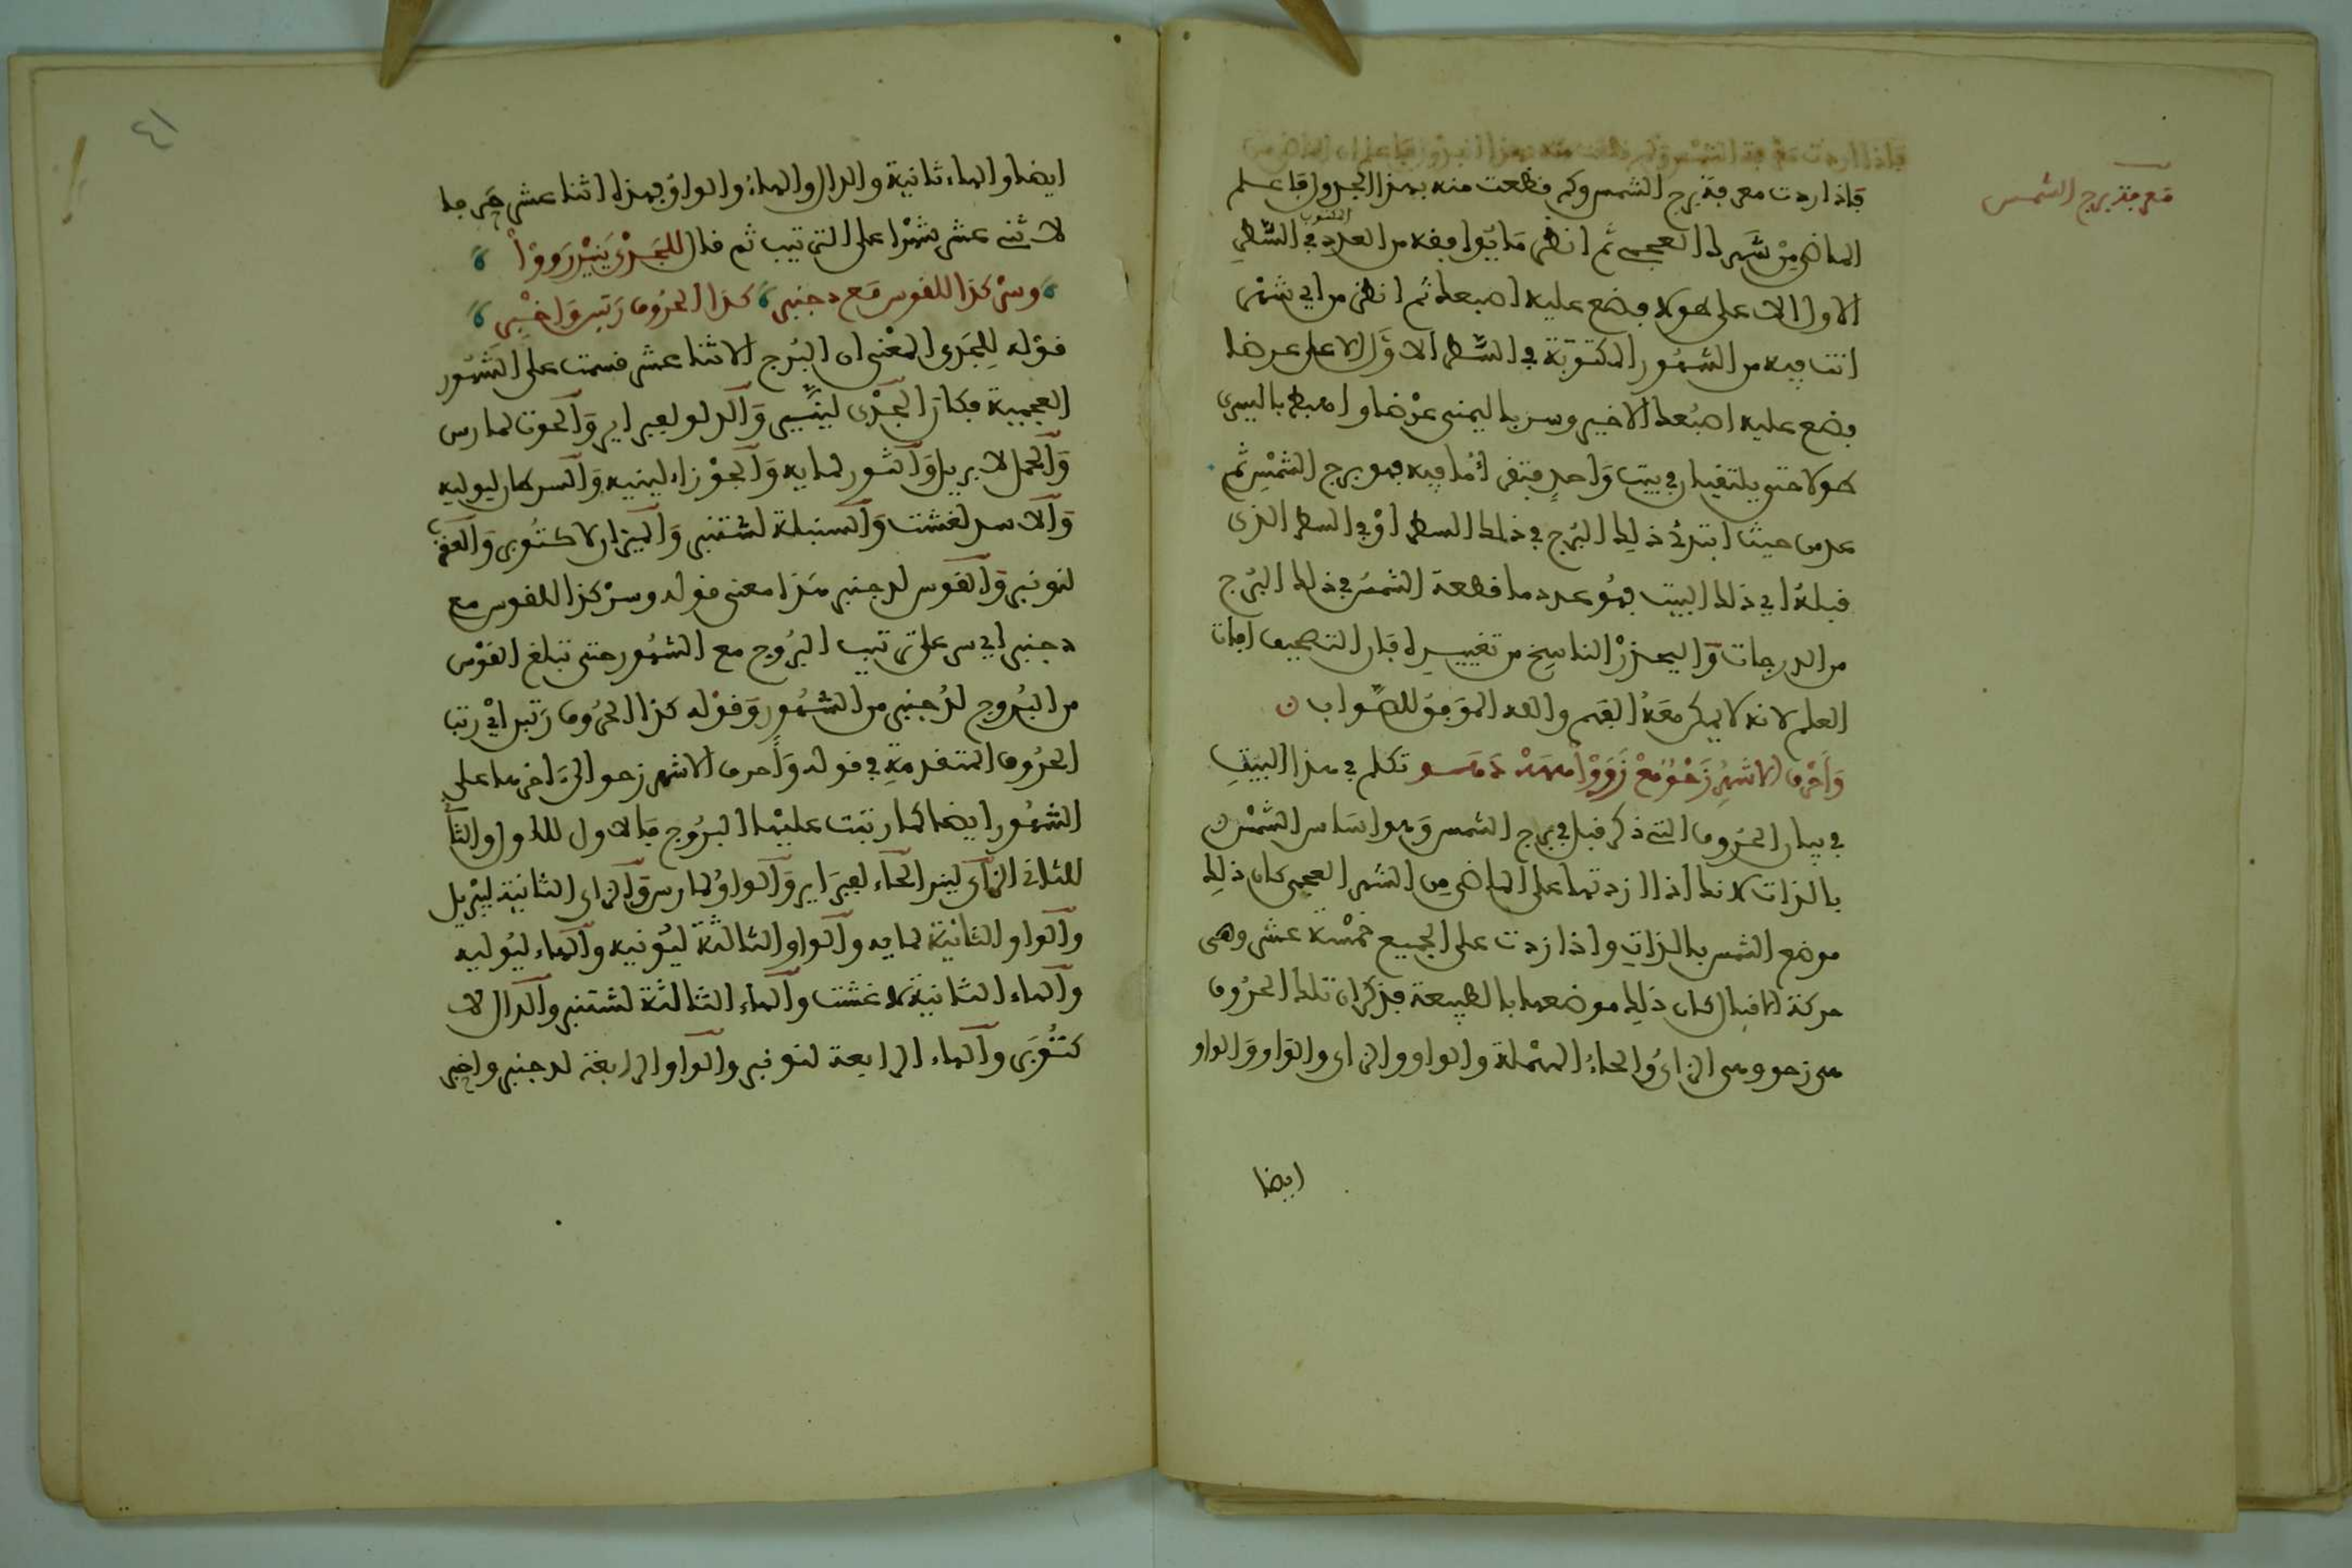 معرفة برج الشمس
فاذا اردت معرفة برج الشمس وكم قطعت منه بهذا الجدول فاعلم
الماضي من شهرك العجمي ثم انظر ما يوافقه من العدد المكتوب في السطر
الاول الاعلى طولا فضع عليه اصبعك ثم انظر من اي شهر
انت فيه من الشهور المكتوبة في السطر الاول الاعلى عرضا
فضع عليه اصبعك الاخير وسر باليمنى عرضا واهبط باليسرى
طولا حتى يلتقيا في بيت واحد فتقرأ ما فيه فهو برج الشمس ثم
عد من حيث ابتدئ ذلك البرج في ذلك السطر او في السطر الذي
قبله الى ذلك البيت فهو عدد ما قطعة الشمس في ذلك البرج
من الدرجات وليحذر الناسخ من تغييره فان التصحيف افات
العلم لانه لا يمكن معه الفهم والله الموفق للصواب ن
وأحرف الاشهر زحو مع زووا مهه دهو تكلم في هذا البيت
في بيان الحروف التي ذكر قبل في برج الشمس وهو اساس الشمس
بالذات لانك اذا زدتها على الماضي من الشهر العجمي كان ذلك
موضع الشمس بالذات واذا زدت على الجميع خمسة عشر وهي
حركة الاقبال كان ذلك موضعها بالطبيعة فذكر ان تلك الحروف
هي زحو وهي الزاي والحاء المهملة والواو والزاي والواو والواو
ايضا
٤١
ايضا والهاء ثانية والدال والهاء والواو فهذا اثنا عشر حرفا
لاثني عشر شهرا على الترتيب ثم قال للجدي ينير رووا
وسر كذا للقوس مع دجنبر كذا الحروف رتبن واخبر
قوله للجدي المعنى ان البرج الاثنا عشر قسمت على الشهور
العجمية فكان الجدي لينير والدلو لفبراير والحوت لمارس
والحمل لابريل والثور لمايه والجوزاء لينيه والسرطان ليوليه
والاسد لغشت والسنبلة لشتنبر والميزان لاكتوبر والعقرب
لنونبر والقوس لدجنبر هذا معنى قوله وسر كذا للقوس مع
دجنبر اي سر على ترتيب البروج مع الشهور حتى تبلغ القوس
من البروج لدجنبر من الشهور وقوله كذا الحروف رتبن اي رتب
الحروف المتقدمة في قوله وأحرف الاشهر زحو الى اخرها على
الشهور ايضا كما رتبت عليها البروج فالاول للاول والثا
للثاني الزاي لينير الحاء لفبراير والواو لمارس والزاي الثانية ليبريل
والواو الثانية لمايه والواو الثالثة ليونيه والهاء ليوليه
والهاء الثانية لاغشت والهاء الثالثة لشتنبر والدال لا
كتوبر والهاء الرابعة لنونبر والواو الرابعة لدجنبر واخبر